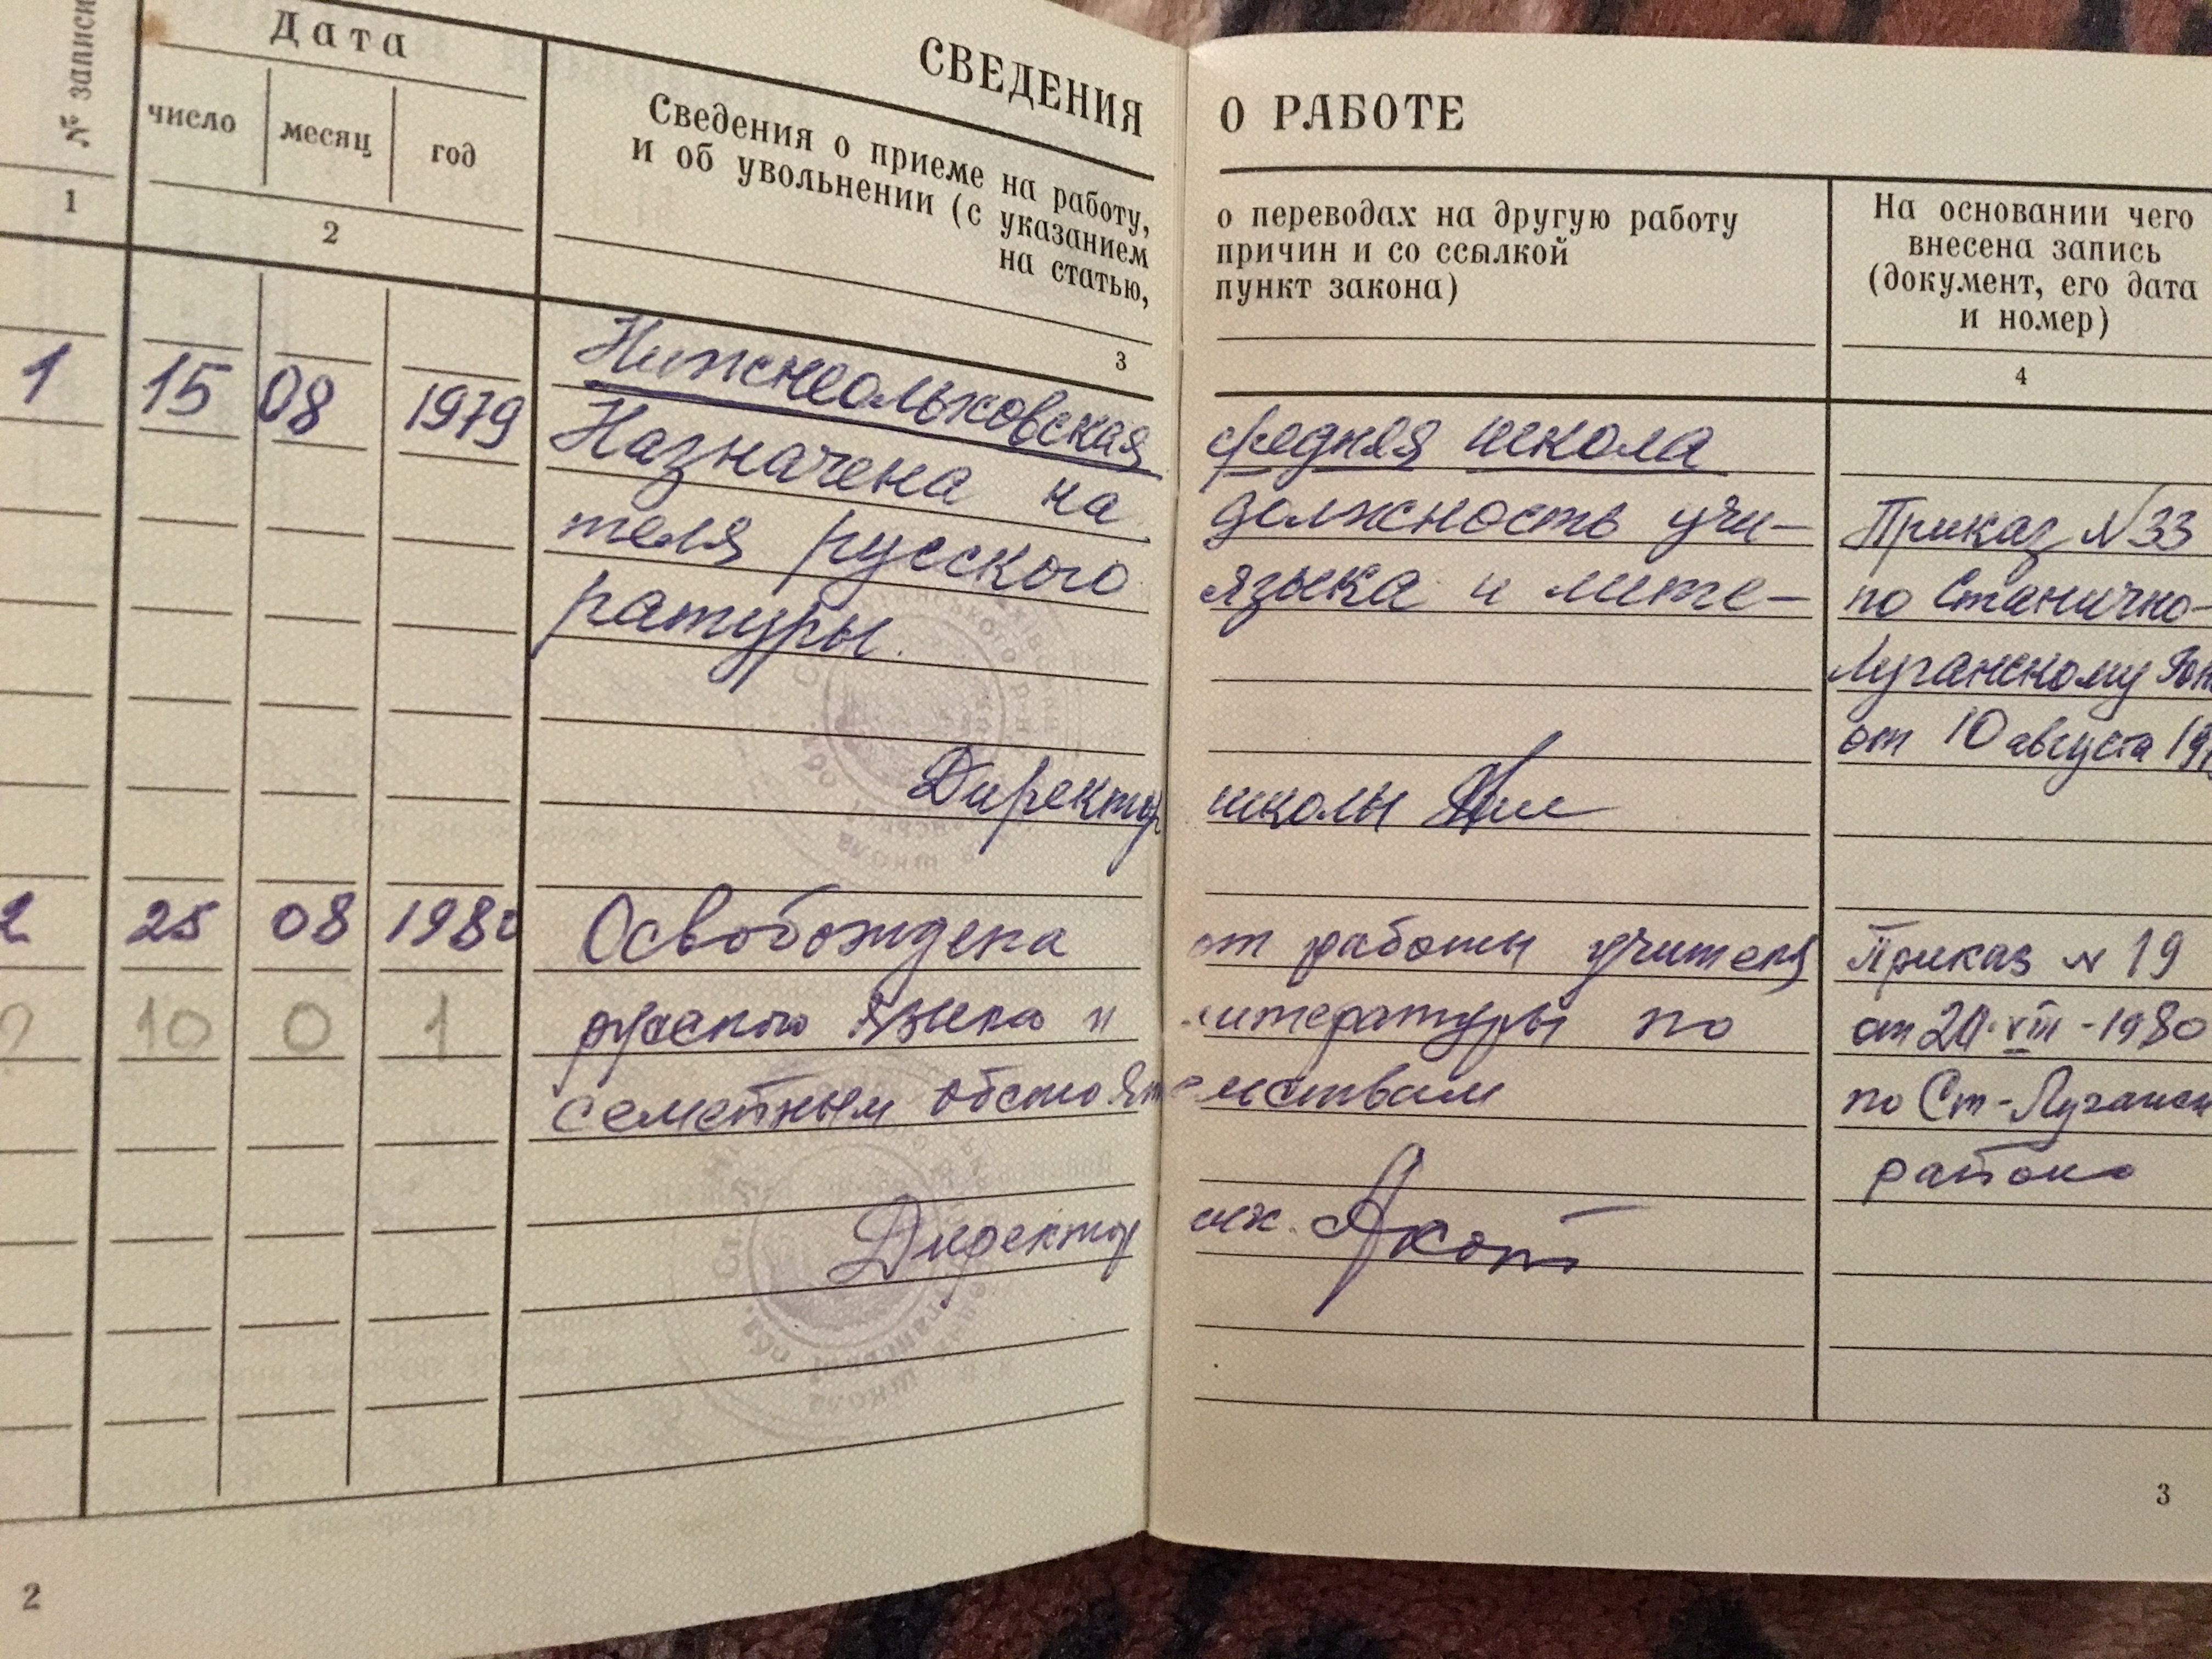 СВЕДЕНИЯ О РАБОТЕ
№ записи
Дата
число месяц год
Сведения о приеме на работу, о переводах на другую работу
и об увольнении (с указанием причин и со ссылкой
на статью, пункт закона)
На основании чего
внесена запись
(документ, его дата
и номер)
1 2 3 4
Нижнеольховская средняя школа
1 15 08 1979 Назначена на должность учи-
теля русского языка и лите-
ратуры.
Приказ N 33
по Станично-
Луганскому
от 10 августа
Директор школы
2 25 08 1980 Освобождена от работы учителя
русского языка и литературы по
семейным обстоятельствам
Приказ N 19
от VIII-1980
по Ст-Луганск
району
10 0 1
Директор шк.
школа
2
3